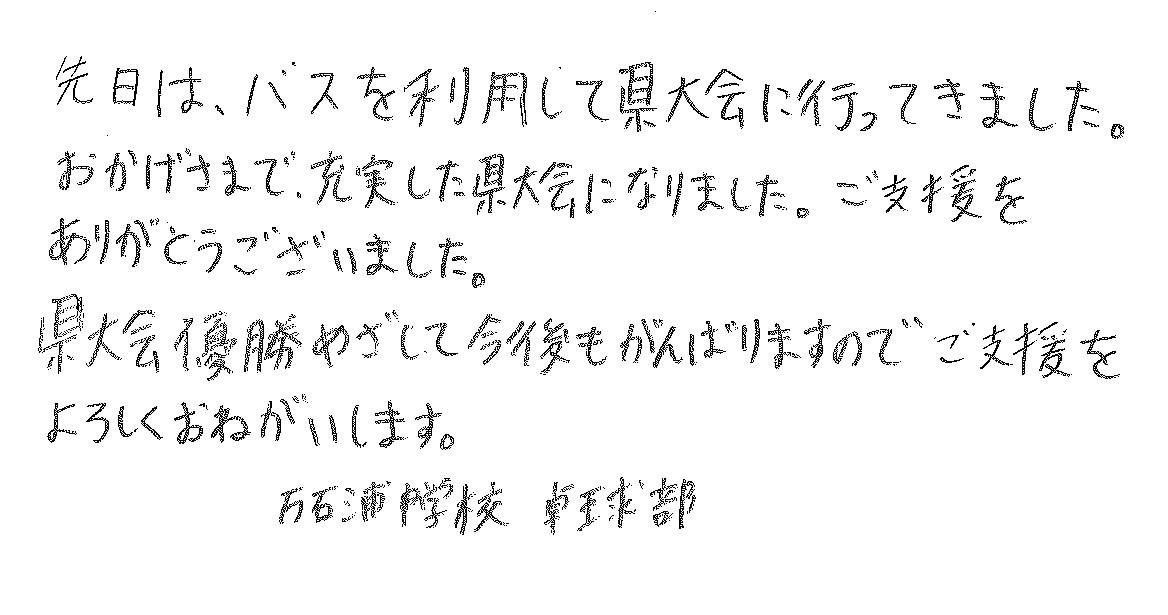 先日は、バスを利用して県大会に行ってきました。
おかげさまで、充実した県大会になりました。ご支援を
ありがとうございました。
県大会優勝めざして今後もがんばりますのでご支援を
よろしくおねがいします。
万石浦中学校 卓球部